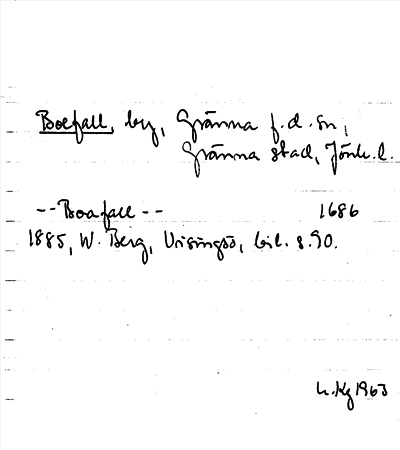 Boefall, by, Gränna f.d. sn,
Gränna stad, Jönk.l.
--Boafall-- 1686
1885, W. Berg, Visingsö, bil. s.90.
L.Kg 1963